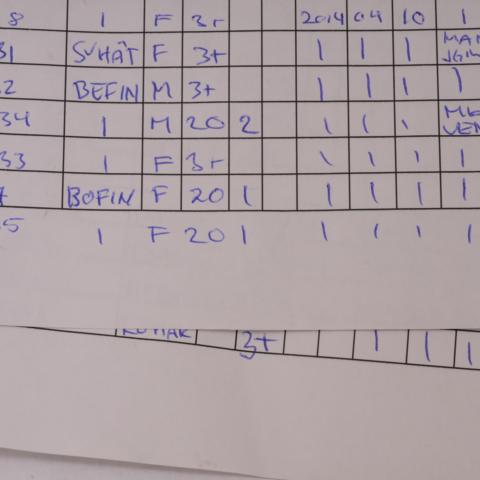 8 1 F 3+ 2014 04 10 1
31 SUHÄT F 3+ 1 1 1
2 BEFIN M 3+ 1 1 1 1
34 1 M 20 2 1 1 1
33 1 F 3+ 1 1 1 1
BOFIN F 20 1 1 1 1 1
5 1 F 20 1 1 1 1 1
3+ 1 1 1